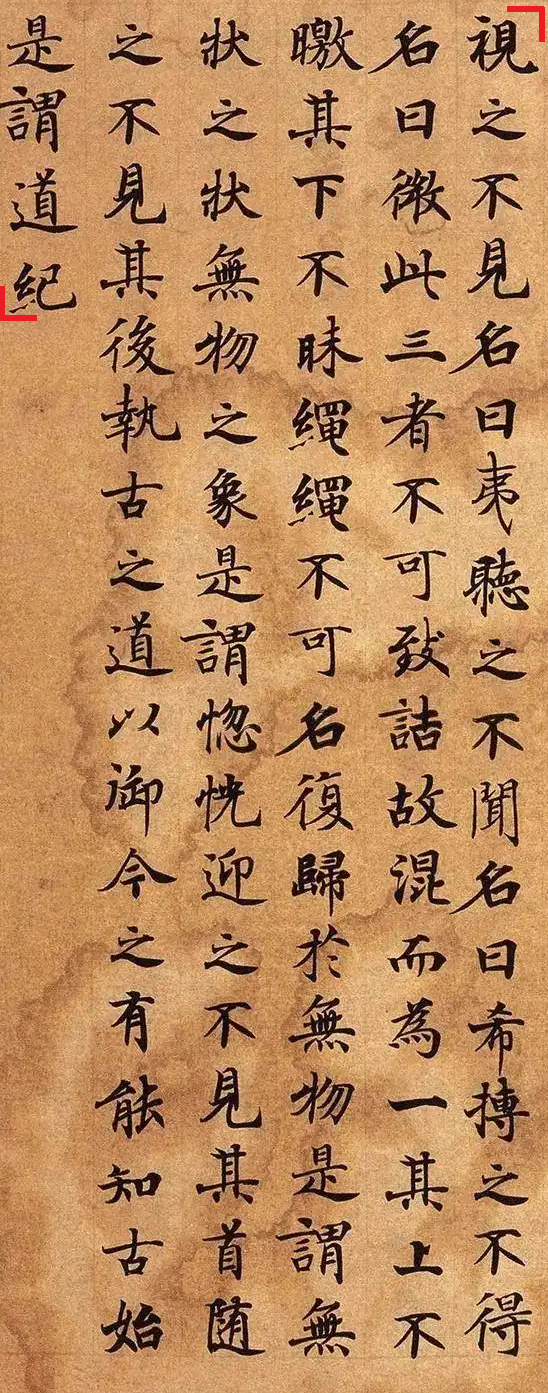 視之不見名曰夷聽之不聞名曰希搏之不得
名曰微此三者不可致詰故混而為一其上不
皦其下不昧繩繩不可名復歸於無物是謂無
狀之狀無物之象是謂惚恍迎之不見其首随
之不見其後執古之道以御今之有能知古始
是謂道紀